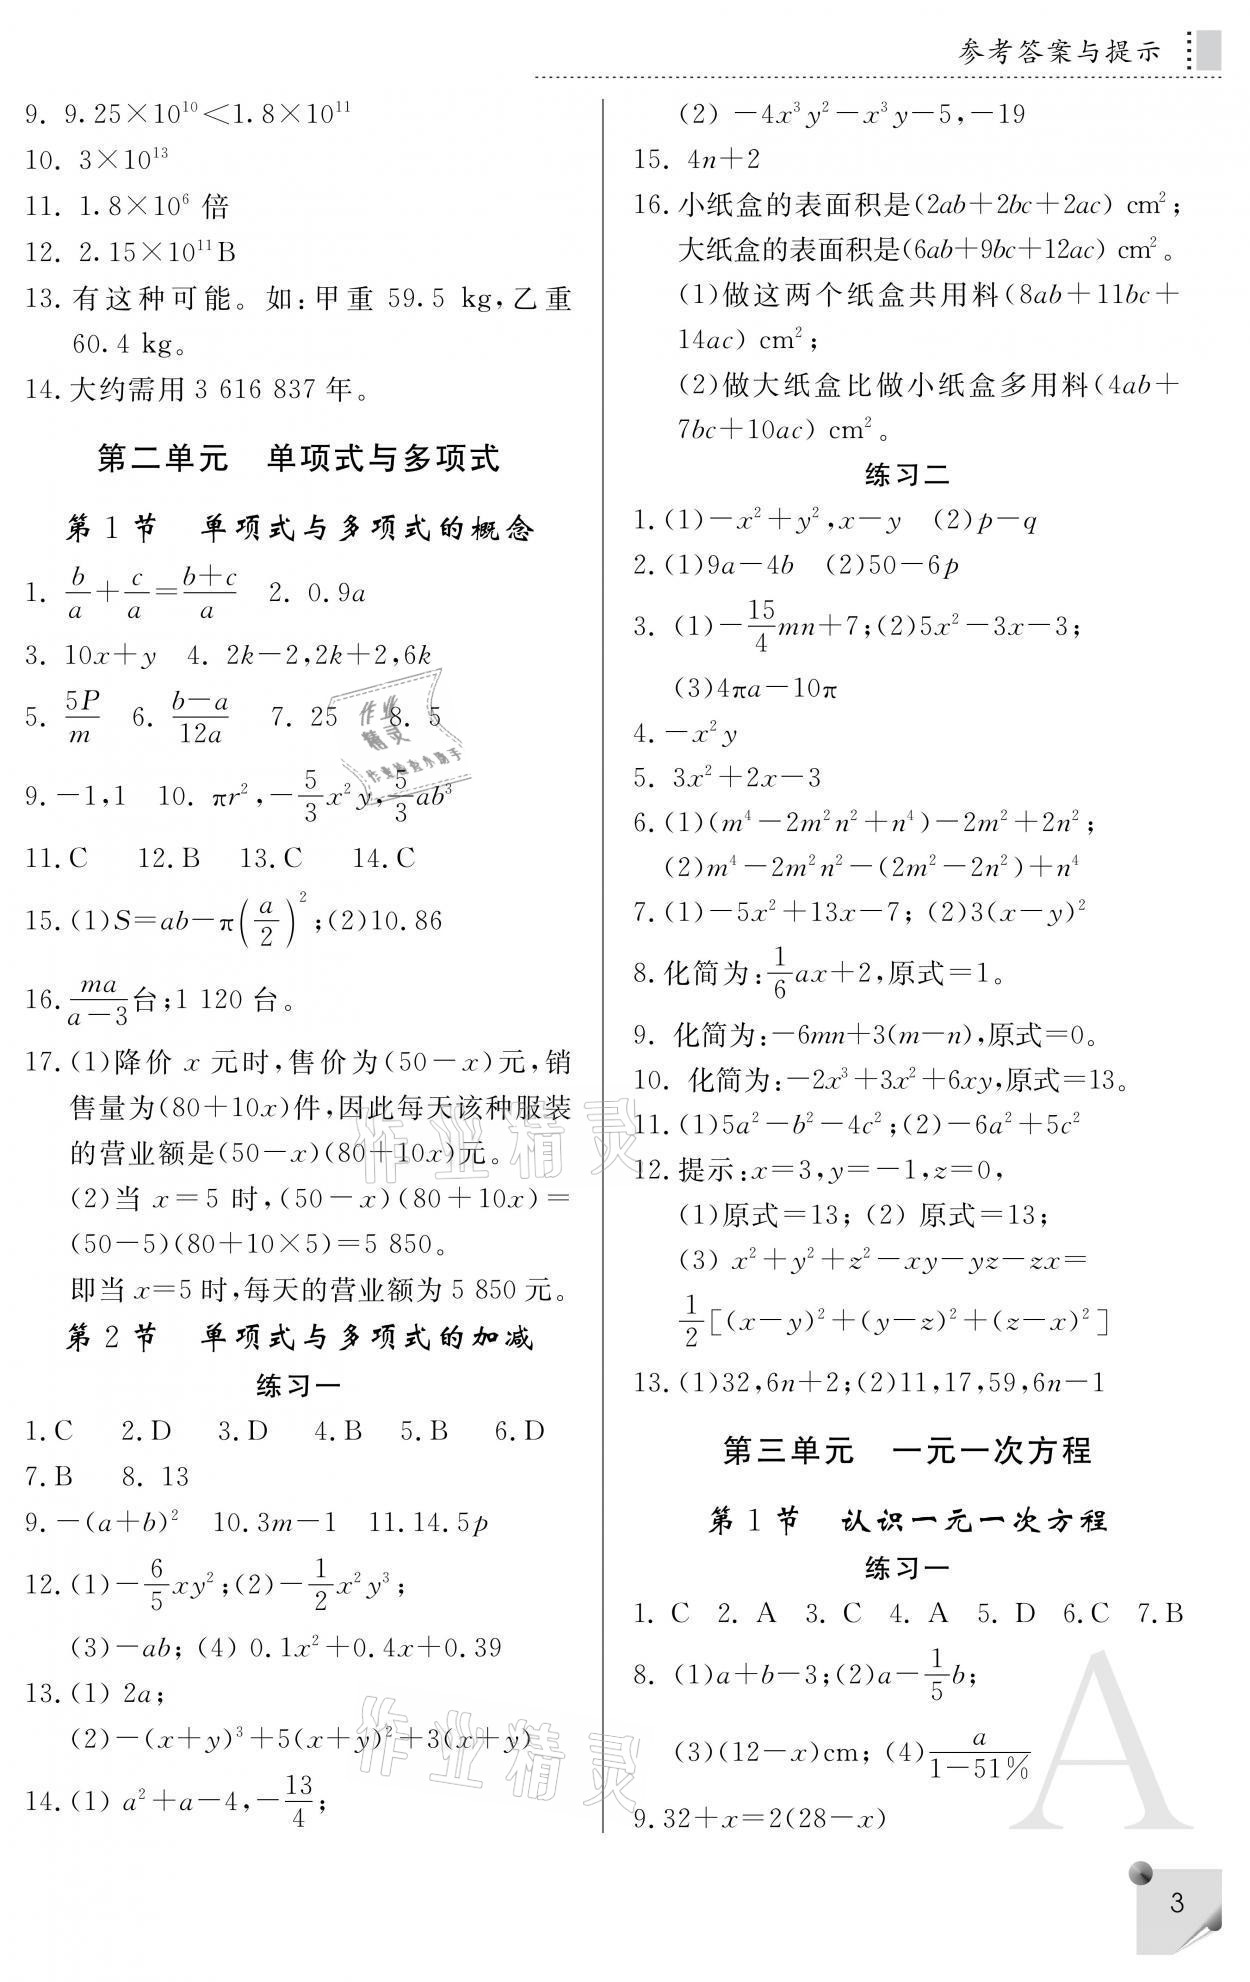 参考答案与提示
9. 9.25×10¹⁰＜1.8×10¹¹
10. 3×10¹³
11. 1.8×10⁶ 倍
12. 2.15×10¹¹B
13. 有这种可能。如:甲重 59.5 kg,乙重
60.4 kg。
14. 大约需用 3 616 837 年。
第二单元 单项式与多项式
第 1 节 单项式与多项式的概念
1. b/a+c/a=(b+c)/a 2. 0.9a
3. 10x+y 4. 2k−2,2k+2,6k
5. 5P/m 6. (b−a)/12a 7. 25 8. 5
9. −1,1 10. πr²,−5/3x²y,5/3ab³
11. C 12. B 13. C 14. C
15. (1)S=ab−π(a/2)²;(2)10.86
16. ma/(a−3)台;1 120 台。
17. (1)降价 x 元时,售价为(50−x)元,销
售量为(80+10x)件,因此每天该种服装
的营业额是(50−x)(80+10x)元。
(2)当 x=5 时,(50−x)(80+10x)=
(50−5)(80+10×5)=5 850。
即当 x=5 时,每天的营业额为 5 850 元。
第 2 节 单项式与多项式的加减
练习一
1. C 2. D 3. D 4. B 5. B 6. D
7. B 8. 13
9. −(a+b)² 10. 3m−1 11. 14.5p
12. (1)−6/5xy²;(2)−1/2x²y³;
(3)−ab; (4) 0.1x²+0.4x+0.39
13. (1) 2a;
(2)−(x+y)³+5(x+y)²+3(x+y)
14. (1) a²+a−4,−13/4;
(2) −4x³y²−x³y−5,−19
15. 4n+2
16. 小纸盒的表面积是(2ab+2bc+2ac) cm²;
大纸盒的表面积是(6ab+9bc+12ac) cm²。
(1)做这两个纸盒共用料(8ab+11bc+
14ac) cm²;
(2)做大纸盒比做小纸盒多用料(4ab+
7bc+10ac) cm²。
练习二
1. (1)−x²+y²,x−y (2)p−q
2. (1)9a−4b (2)50−6p
3. (1)−15/4mn+7;(2)5x²−3x−3;
(3)4πa−10π
4. −x²y
5. 3x²+2x−3
6. (1)(m⁴−2m²n²+n⁴)−2m²+2n²;
(2)m⁴−2m²n²−(2m²−2n²)+n⁴
7. (1)−5x²+13x−7; (2)3(x−y)²
8. 化简为:1/6ax+2,原式=1。
9. 化简为:−6mn+3(m−n),原式=0。
10. 化简为:−2x³+3x²+6xy,原式=13。
11. (1)5a²−b²−4c²;(2)−6a²+5c²
12. 提示:x=3,y=−1,z=0,
(1)原式=13; (2) 原式=13;
(3) x²+y²+z²−xy−yz−zx=
1/2[(x−y)²+(y−z)²+(z−x)²]
13. (1)32,6n+2;(2)11,17,59,6n−1
第三单元 一元一次方程
第 1 节 认识一元一次方程
练习一
1. C 2. A 3. C 4. A 5. D 6. C 7. B
8. (1)a+b−3;(2)a−1/5b;
(3)(12−x)cm; (4)a/(1−51%)
9. 32+x=2(28−x)
A
3
作业精灵
作业检查小助手
作业精灵
作业精灵